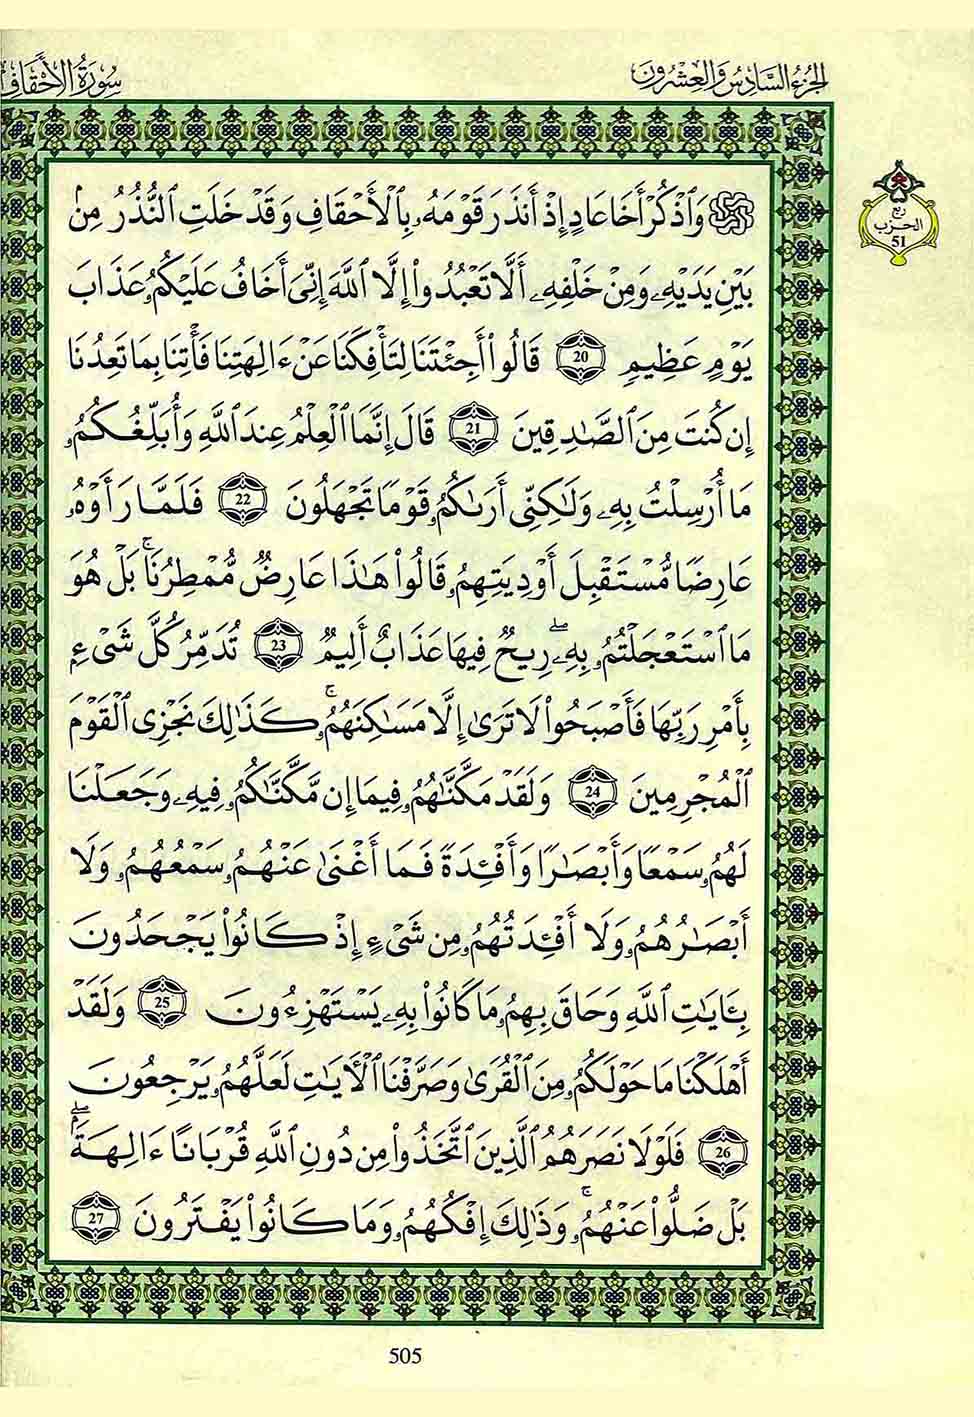 الجزء السادس والعشرون
سورة الأحقاف
ربع
الحزب
51
۞ وَٱذْكُرْ أَخَا عَادٍ إِذْ أَنذَرَ قَوْمَهُۥ بِٱلْأَحْقَافِ وَقَدْ خَلَتِ ٱلنُّذُرُ مِنۢ
بَيْنِ يَدَيْهِۦ وَمِنْ خَلْفِهِۦ أَلَّا تَعْبُدُوٓاْ إِلَّا ٱللَّهَ إِنِّىٓ أَخَافُ عَلَيْكُمُۥ عَذَابَ
يَوْمٍ عَظِيمٍ 20 قَالُوٓاْ أَجِئْتَنَا لِتَأْفِكَنَا عَنْ ءَالِهَتِنَا فَأْتِنَا بِمَا تَعِدُنَا
إِن كُنتَ مِنَ ٱلصَّٰدِقِينَ 21 قَالَ إِنَّمَا ٱلْعِلْمُ عِندَ ٱللَّهِ وَأُبَلِّغُكُمُۥ
مَآ أُرْسِلْتُ بِهِۦ وَلَٰكِنِّىٓ أَرَىٰكُمُۥ قَوْمًا تَجْهَلُونَ 22 فَلَمَّا رَأَوْهُۥ
عَارِضًا مُّسْتَقْبِلَ أَوْدِيَتِهِمُۥ قَالُواْ هَٰذَا عَارِضٌ مُّمْطِرُنَا ۚ بَلْ هُوَ
مَا ٱسْتَعْجَلْتُمُۥ بِهِۦ ۖ رِيحٌ فِيهَا عَذَابٌ أَلِيمٌ 23 تُدَمِّرُ كُلَّ شَىْءٍۭ
بِأَمْرِ رَبِّهَا فَأَصْبَحُواْ لَا تَرَىٰٓ إِلَّا مَسَٰكِنَهُمُۥ ۚ كَذَٰلِكَ نَجْزِى ٱلْقَوْمَ
ٱلْمُجْرِمِينَ 24 وَلَقَدْ مَكَّنَّٰهُمُۥ فِيمَآ إِن مَّكَّنَّٰكُمُۥ فِيهِۦ وَجَعَلْنَا
لَهُمُۥ سَمْعًا وَأَبْصَٰرًا وَأَفْـِٔدَةً فَمَآ أَغْنَىٰ عَنْهُمُۥ سَمْعُهُمُۥ وَلَآ
أَبْصَٰرُهُمُۥ وَلَآ أَفْـِٔدَتُهُمُۥ مِن شَىْءٍ إِذْ كَانُواْ يَجْحَدُونَ
بِـَٔايَٰتِ ٱللَّهِ وَحَاقَ بِهِمُۥ مَا كَانُواْ بِهِۦ يَسْتَهْزِءُونَ 25 وَلَقَدْ
أَهْلَكْنَا مَا حَوْلَكُمُۥ مِنَ ٱلْقُرَىٰ وَصَرَّفْنَا ٱلْأٓيَٰتِ لَعَلَّهُمُۥ يَرْجِعُونَ
26 فَلَوْلَا نَصَرَهُمُ ٱلَّذِينَ ٱتَّخَذُواْ مِن دُونِ ٱللَّهِ قُرْبَانًا ءَالِهَةَۢ ۖ
بَلْ ضَلُّواْ عَنْهُمُۥ ۚ وَذَٰلِكَ إِفْكُهُمُۥ وَمَا كَانُواْ يَفْتَرُونَ 27
505